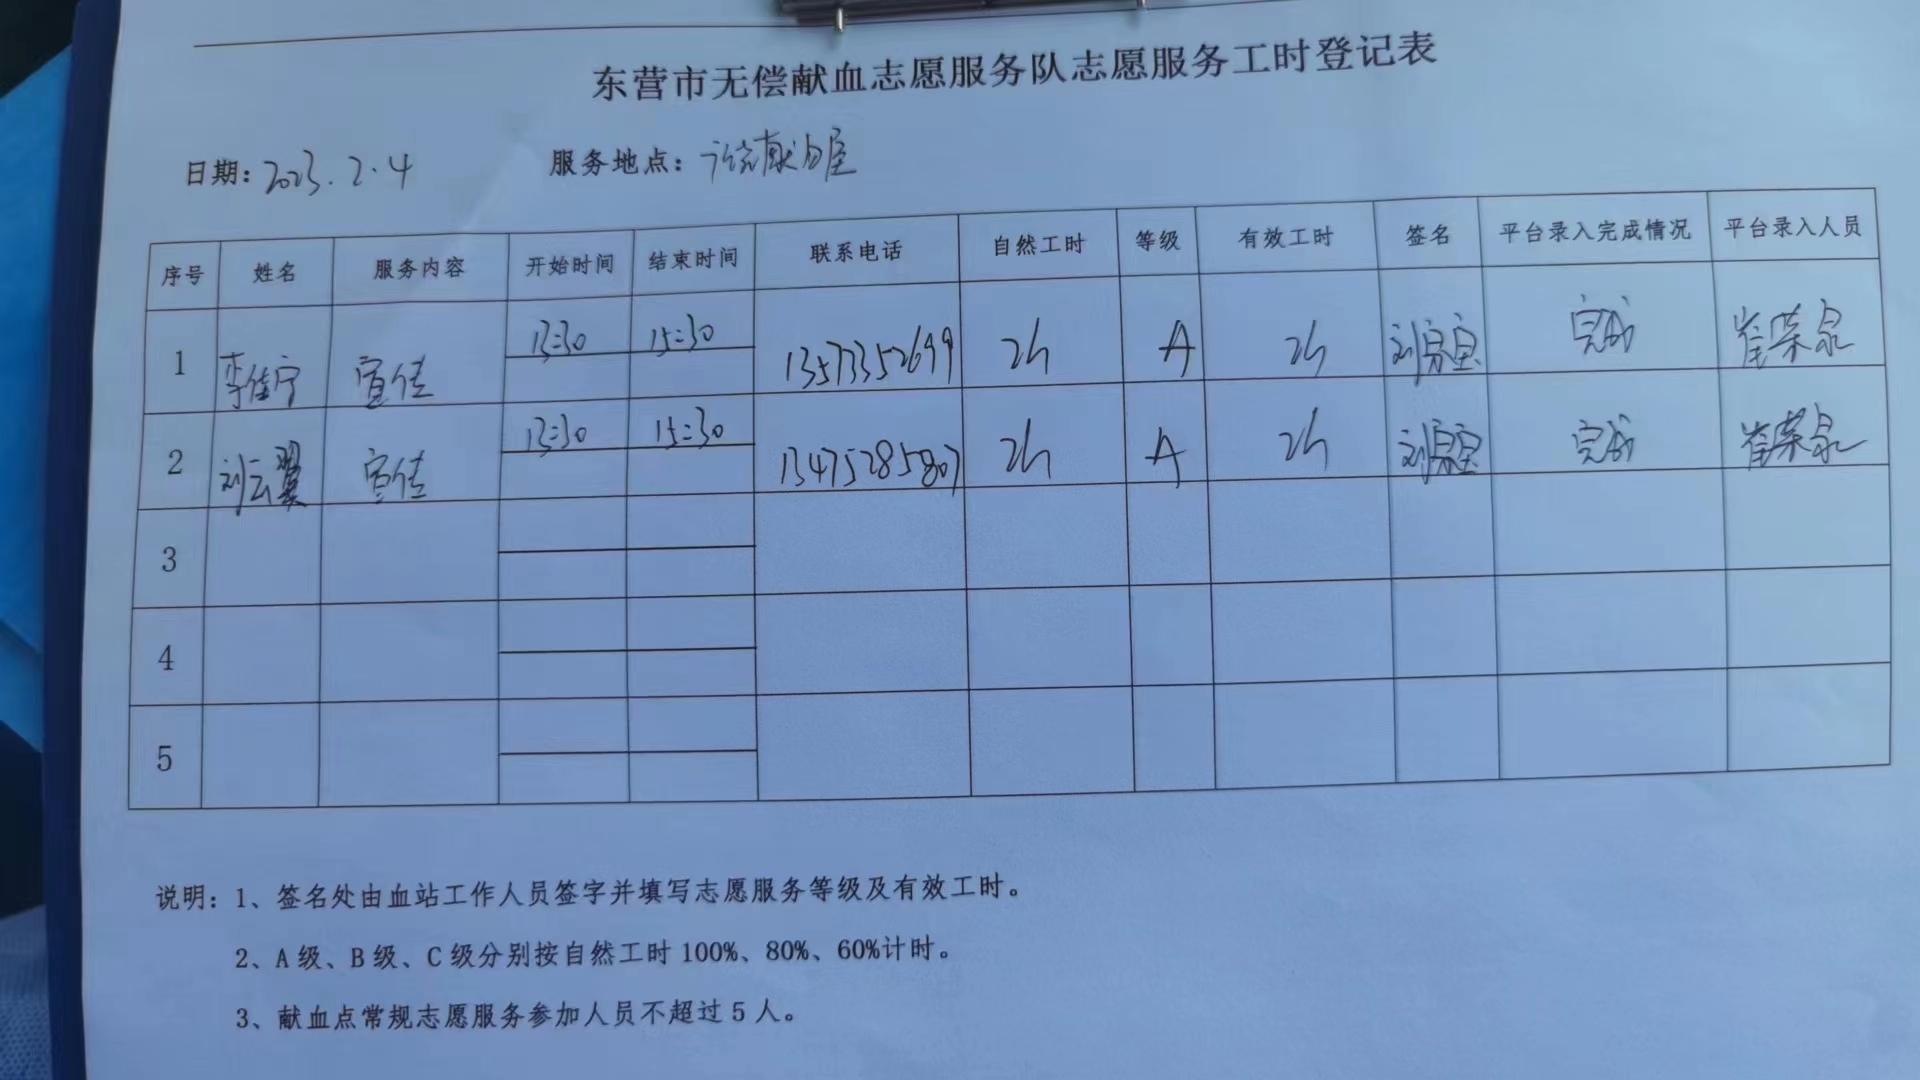 东营市无偿献血志愿服务队志愿服务工时登记表
日期: 2023.2.4 服务地点: 献血屋
序号 姓名 服务内容 开始时间 结束时间 联系电话 自然工时 等级 有效工时 签名 平台录入完成情况 平台录入人员
1 李佳宁 宣传 13:30 15:30 13573352699 2h A 2h 完成 崔荣泉
2 刘云翼 宣传 13:30 15:30 13475285807 2h A 2h 完成 崔荣泉
3
4
5
说明: 1、签名处由血站工作人员签字并填写志愿服务等级及有效工时。
2、A级、B级、C级分别按自然工时100%、80%、60%计时。
3、献血点常规志愿服务参加人员不超过5人。